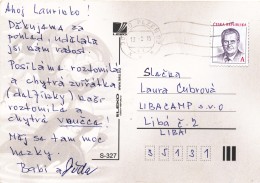 Ahoj Laurinko!
Děkujeme za
pohled, udělala
jsi nám radost.
Posíláme roztomilá
a chytrá zvířátka
(delfínky) kači
roztomilá a
chytrá
Měj se tam moc
hezky.
Berbi a Jóda
S-327
ČESKÁ REPUBLIKA
A
Slečna
Laura Cubrová
LIBACAMP s.r.o
Libá č. 2
LIBÁ
35131